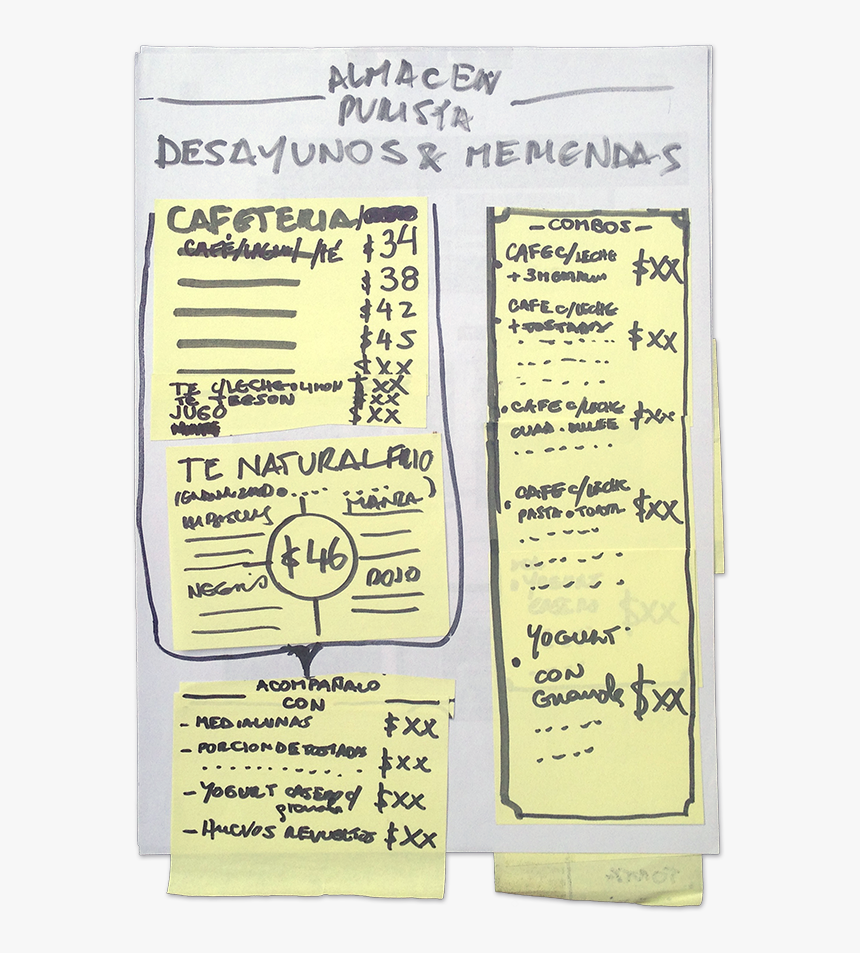 ALMACEN
PURISTA
DESAYUNOS & MERIENDAS
CAFETERIA/
CAFÉ/LAGRI/ /TÉ $34
$38
$42
$45
$XX
TE C/LECHE O LIMON $XX
TE TBESON $XX
JUGO $XX
TE NATURAL FRIO
MANZA )
HIBISCUS
$46
NEGRO ROJO
ACOMPAÑALO
CON
- MEDIALUNAS $XX
- PORCION DE TOSTADAS
$XX
- YOGURT CASERO C/ $XX
granola
- HUEVOS REVUELTOS $XX
- COMBOS -
• CAFE C/LECHE $XX
+ 3 MEDIALUN
• CAFE C/LECHE
+ TOSTADAS $XX
• CAFE C/LECHE $XX
CUAD. DULCE
• CAFE C/LECHE $XX
PASTA O TORTA
YOGURT
• CON
Granola $XX